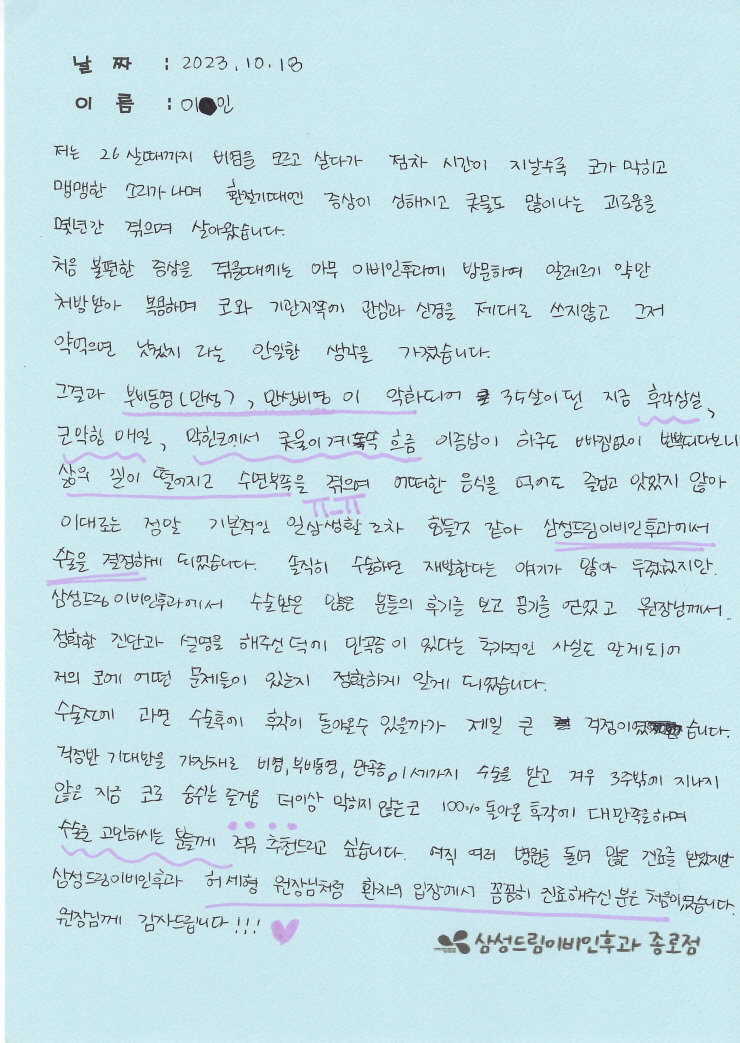 날 짜 : 2023.10.18
이 름 : 이 인
저는 26살때까지 비염을 모르고 살다가 점차 시간이 지날수록 코가 막히고
맹맹한 소리가 나며 환절기때엔 증상이 심해지고 콧물도 많이나는 괴로움을
몇년간 겪으며 살아왔습니다.
처음 불편한 증상을 겪을때에는 아무 이비인후과에 방문하여 알레르기 약만
처방받아 복용하며 코와 기관지쪽에 관심과 신경을 제대로 쓰지않고 그저
약먹으면 낫겠지 라는 안일한 생각을 가졌습니다.
그결과 부비동염(만성), 만성비염이 악화되어 35살이 된 지금 후각상실,
코막힘 매일, 막힌코에서 콧물이 계속 뚝뚝 흐름 이증상이 하루도 빠짐없이 반복되다보니
삶의 질이 떨어지고 수면부족을 겪으며 어떠한 음식을 먹어도 즐겁고 맛있지 않아
ㅠ-ㅠ
이대로는 정말 기본적인 일상생활조차 힘들것 같아 삼성드림이비인후과에서
수술을 결정하게 되었습니다. 솔직히 수술하면 재발한다는 얘기가 많아 두려웠지만
삼성드림이비인후과에서 수술받은 많은 분들의 후기를 보고 용기를 얻었고 원장님께서
정확한 진단과 설명을 해주신 덕에 만곡증이 있다는 추가적인 사실도 알게되어
저의 코에 어떤 문제들이 있는지 정확하게 알게 되었습니다.
수술전에 과연 수술후에 후각이 돌아올수 있을까가 제일 큰 걱정이였습니다.
걱정반 기대반을 가진채로 비염, 부비동염, 만곡증, 이세가지 수술을 받고 겨우 3주밖에 지나지
않은 지금 코로 숨쉬는 즐거움 더이상 막히지 않는 코 100% 돌아온 후각에 대만족을하며
수술을 고민하시는 분들께 적극 추천드리고 싶습니다. 여직 여러 병원을 돌며 많은 진료를 받았지만
삼성드림이비인후과 허세형 원장님처럼 환자의 입장에서 꼼꼼히 진료해주신 분은 처음이였습니다.
원장님께 감사드립니다!!! ♥
삼성드림이비인후과 종로점